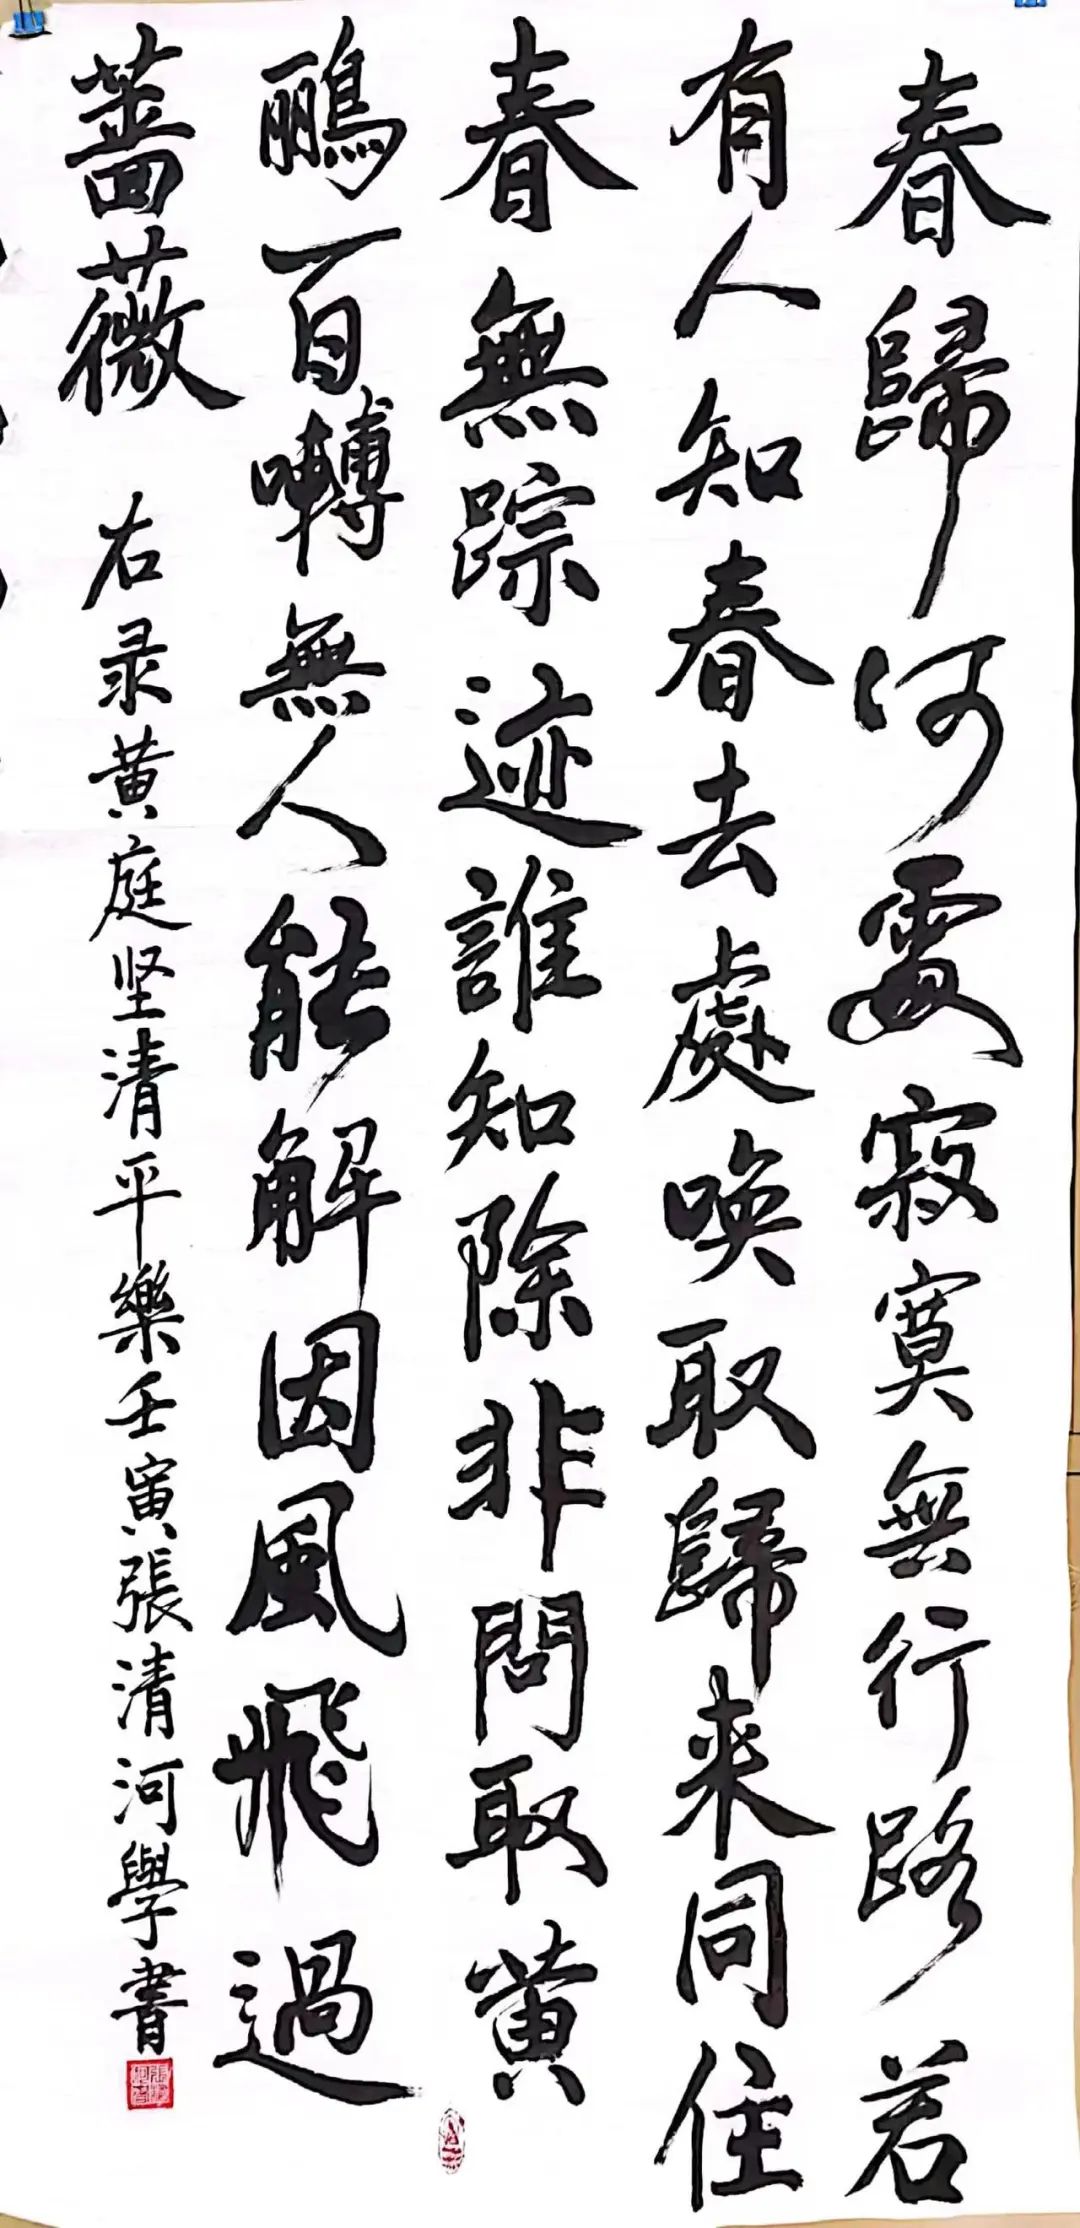 春歸何處寂寞無行路若
有人知春去處喚取歸來同住
春無踪迹誰知除非問取黄
鸝百囀無人能解因風飛過
蔷薇
右录黄庭坚清平樂壬寅張清河學書